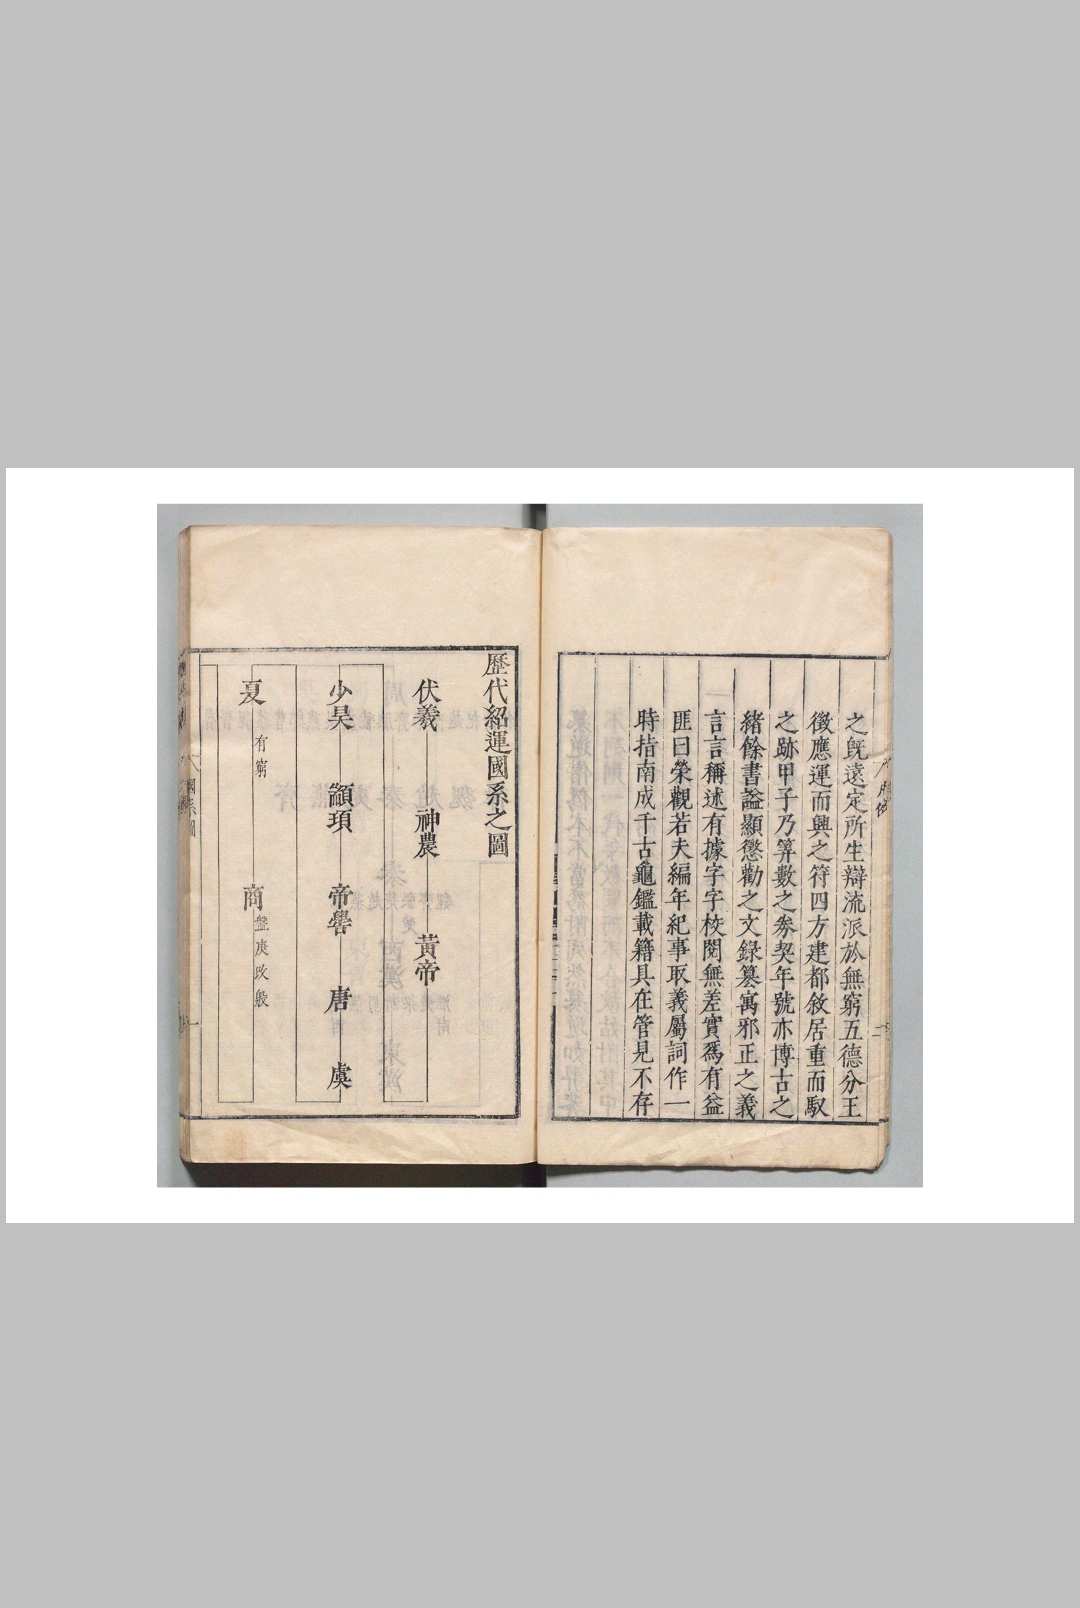 之旣遠定所生辯流派於無窮五德分王
徵應運而興之符四方建都敘居重而馭
之跡甲子乃筭數之叅契年號亦博古之
緒餘書謚顯懲勸之文錄篡寓邪正之義
言言稱述有據字字校閱無差實爲有益
匪曰榮觀若夫編年紀事取義屬詞作一
時指南成千古龜鑑載籍具在管見不存
歷代紹運國系之圖
伏羲 神農 黃帝
少昊 顓頊 帝嚳 唐 虞
夏 有窮 商 盤庚改殷
國系圖